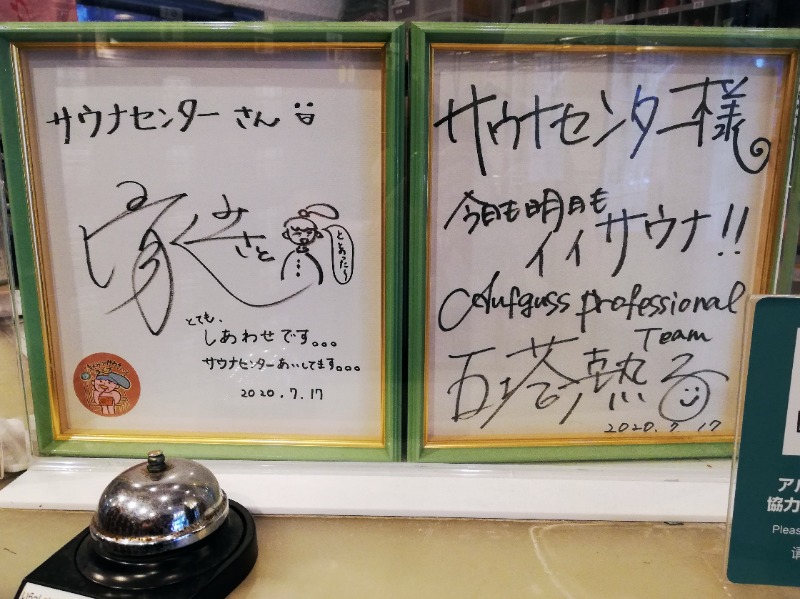 サウナセンターさん
みさと
ととのった〜
とても、
しあわせです。。。
サウナセンターあいしてます。。。
2020.7.17
サウナセンター様
今日も明日も
イイサウナ!!
Aufguss professional
Team
五塔熱子
2020.7.17
アル
協力
Pleas
请